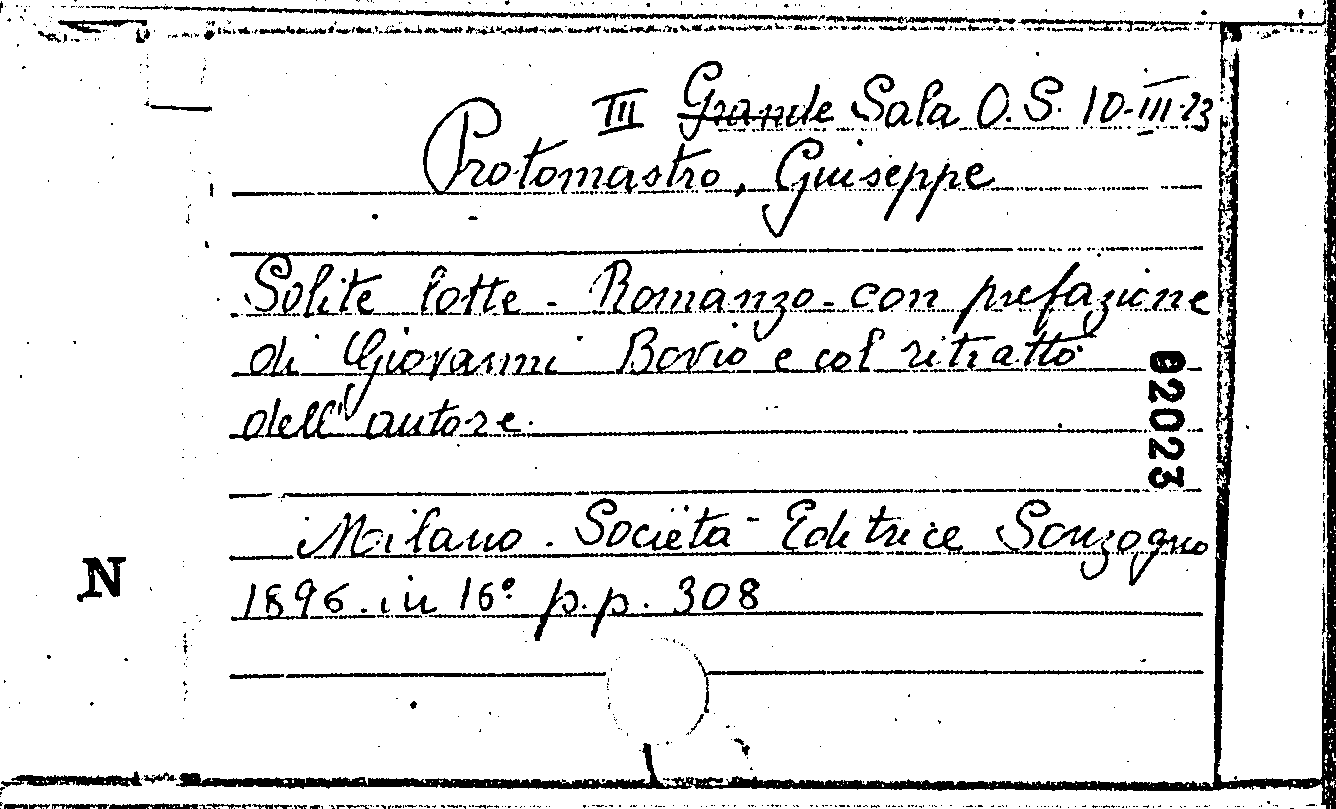 III Grande Sala O.S. 10-III-23
Protomastro, Giuseppe
Solite lotte - Romanzo - con prefazione
di Giovanni Bovio e col ritratto
dell'autore.
02023
Milano - Società Editrice Sonzogno
N
1896. in 16° p.p. 308